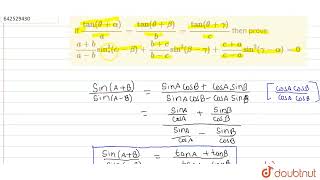 642529430
If tan(θ+α)/a = tan(θ+β)/b = tan(θ+γ)/c then prove
(a+b)/(a−b) sin²(α−β) + (b+c)/(b−c) sin²(β−γ) + (c+a)/(c−a) sin²(γ−α) = 0
Sin(A+B)/Sin(A-B) = (SinA CosB + CosA SinB)/(SinA CosB - CosA SinB) [CosA CosB/CosA CosB]
= (SinA/CosA + SinB/CosB)/(SinA/CosA - SinB/CosB)
Sin(A+B) = tanA + tanB
doubtnut